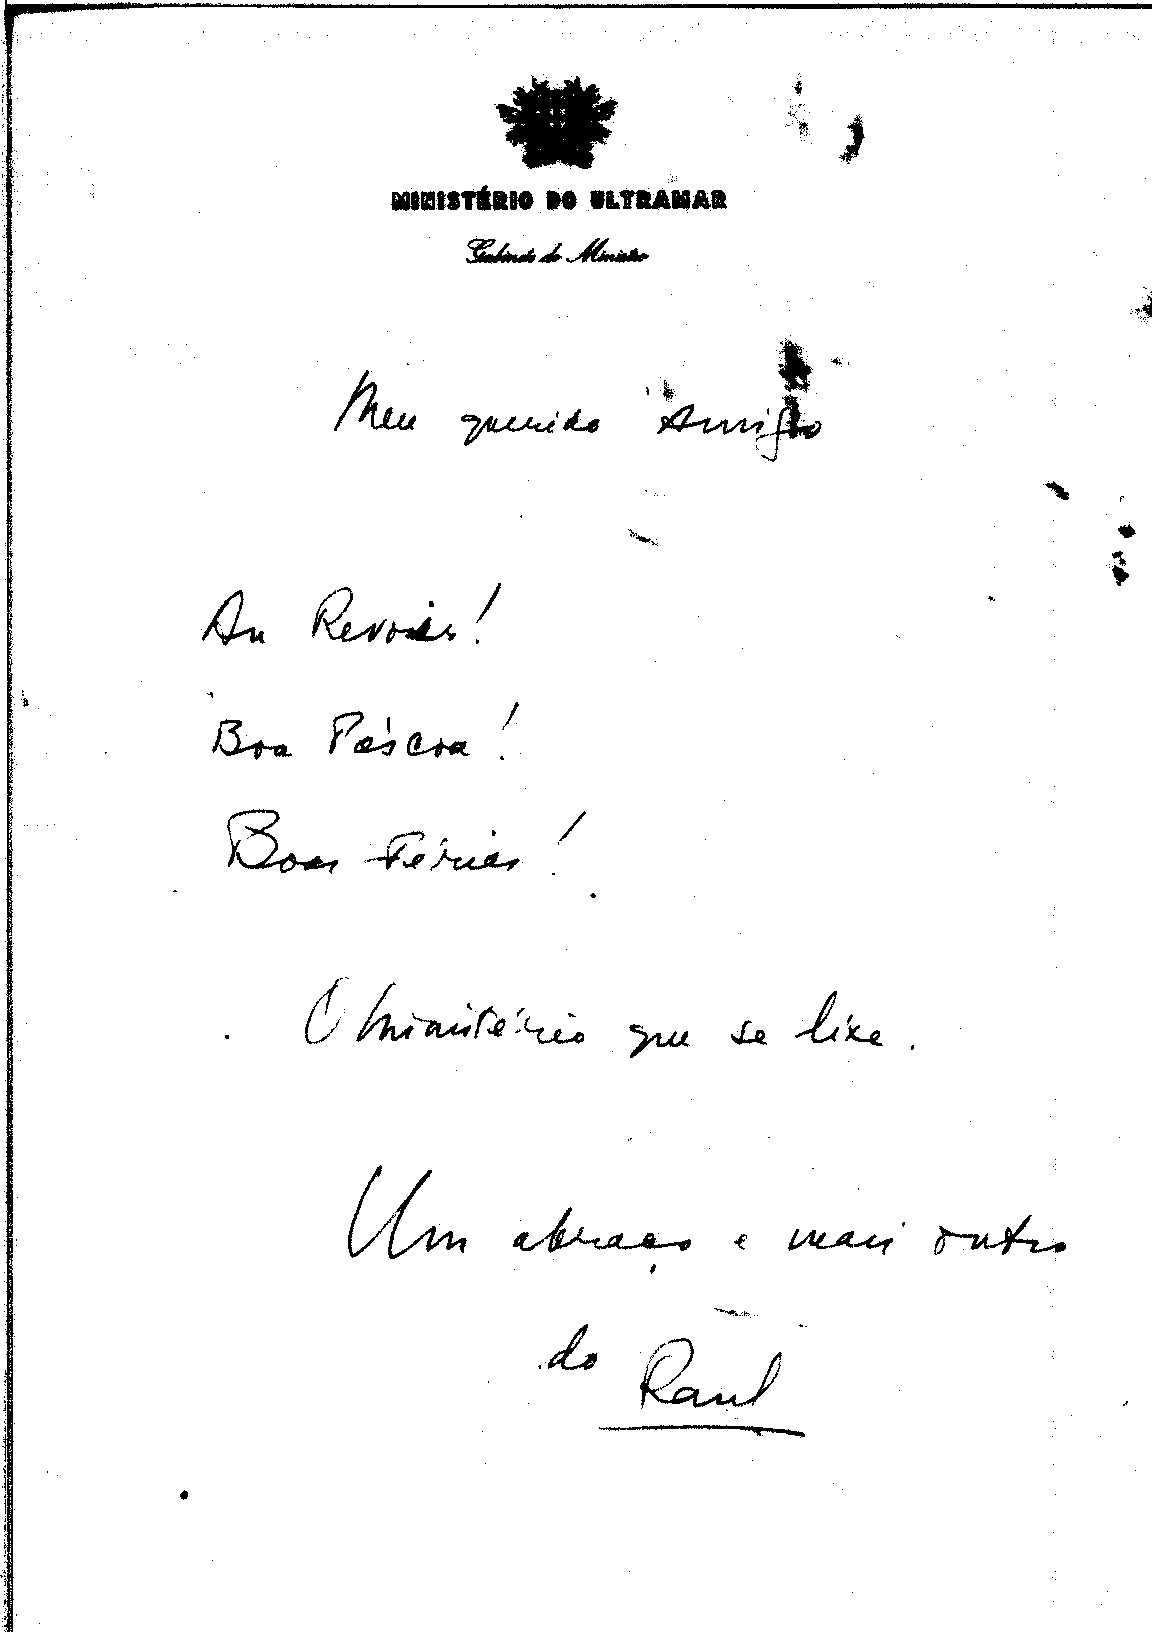 MINISTÉRIO DO ULTRAMAR
Gabinete do Ministro
Meu querido Amigo
Au Revoir!
Boa Páscoa!
Boas Férias!
O Ministério que se lixe.
Um abraço e mais outro
do Raul